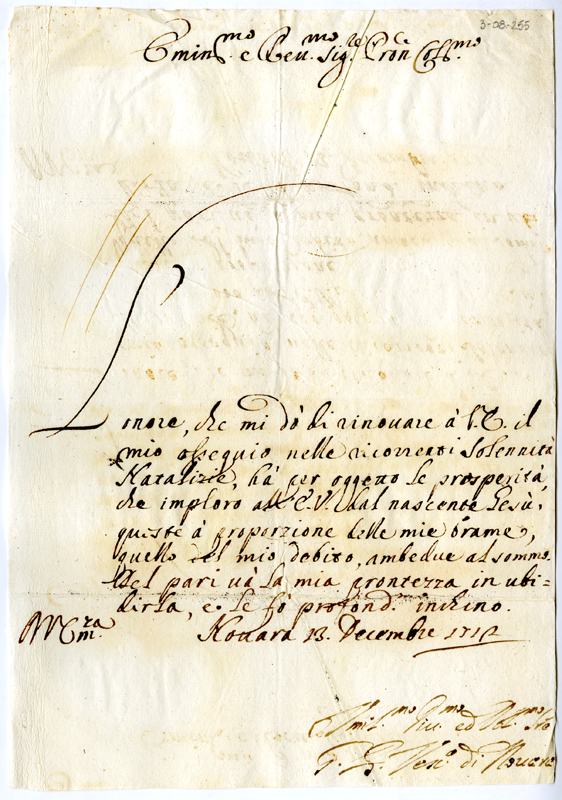 3-08-255
Emin.mo e Reu.mo Sig.re Pron Col.mo
L'onore, che mi dò di rinouare à V.E. il
mio ossequio nelle ricorrenti Solennità
Natalizie, hà per oggetto le prosperità,
che imploro all'E.V. dal nascente Gesù,
queste à proporzione delle mie brame,
quello del mio debito, ambedue al sommo.
Del pari và la mia prontezza in ubi=
dirla, e le fò profond. inchino.
Nouara 13. Decembre 1712
di Nouara